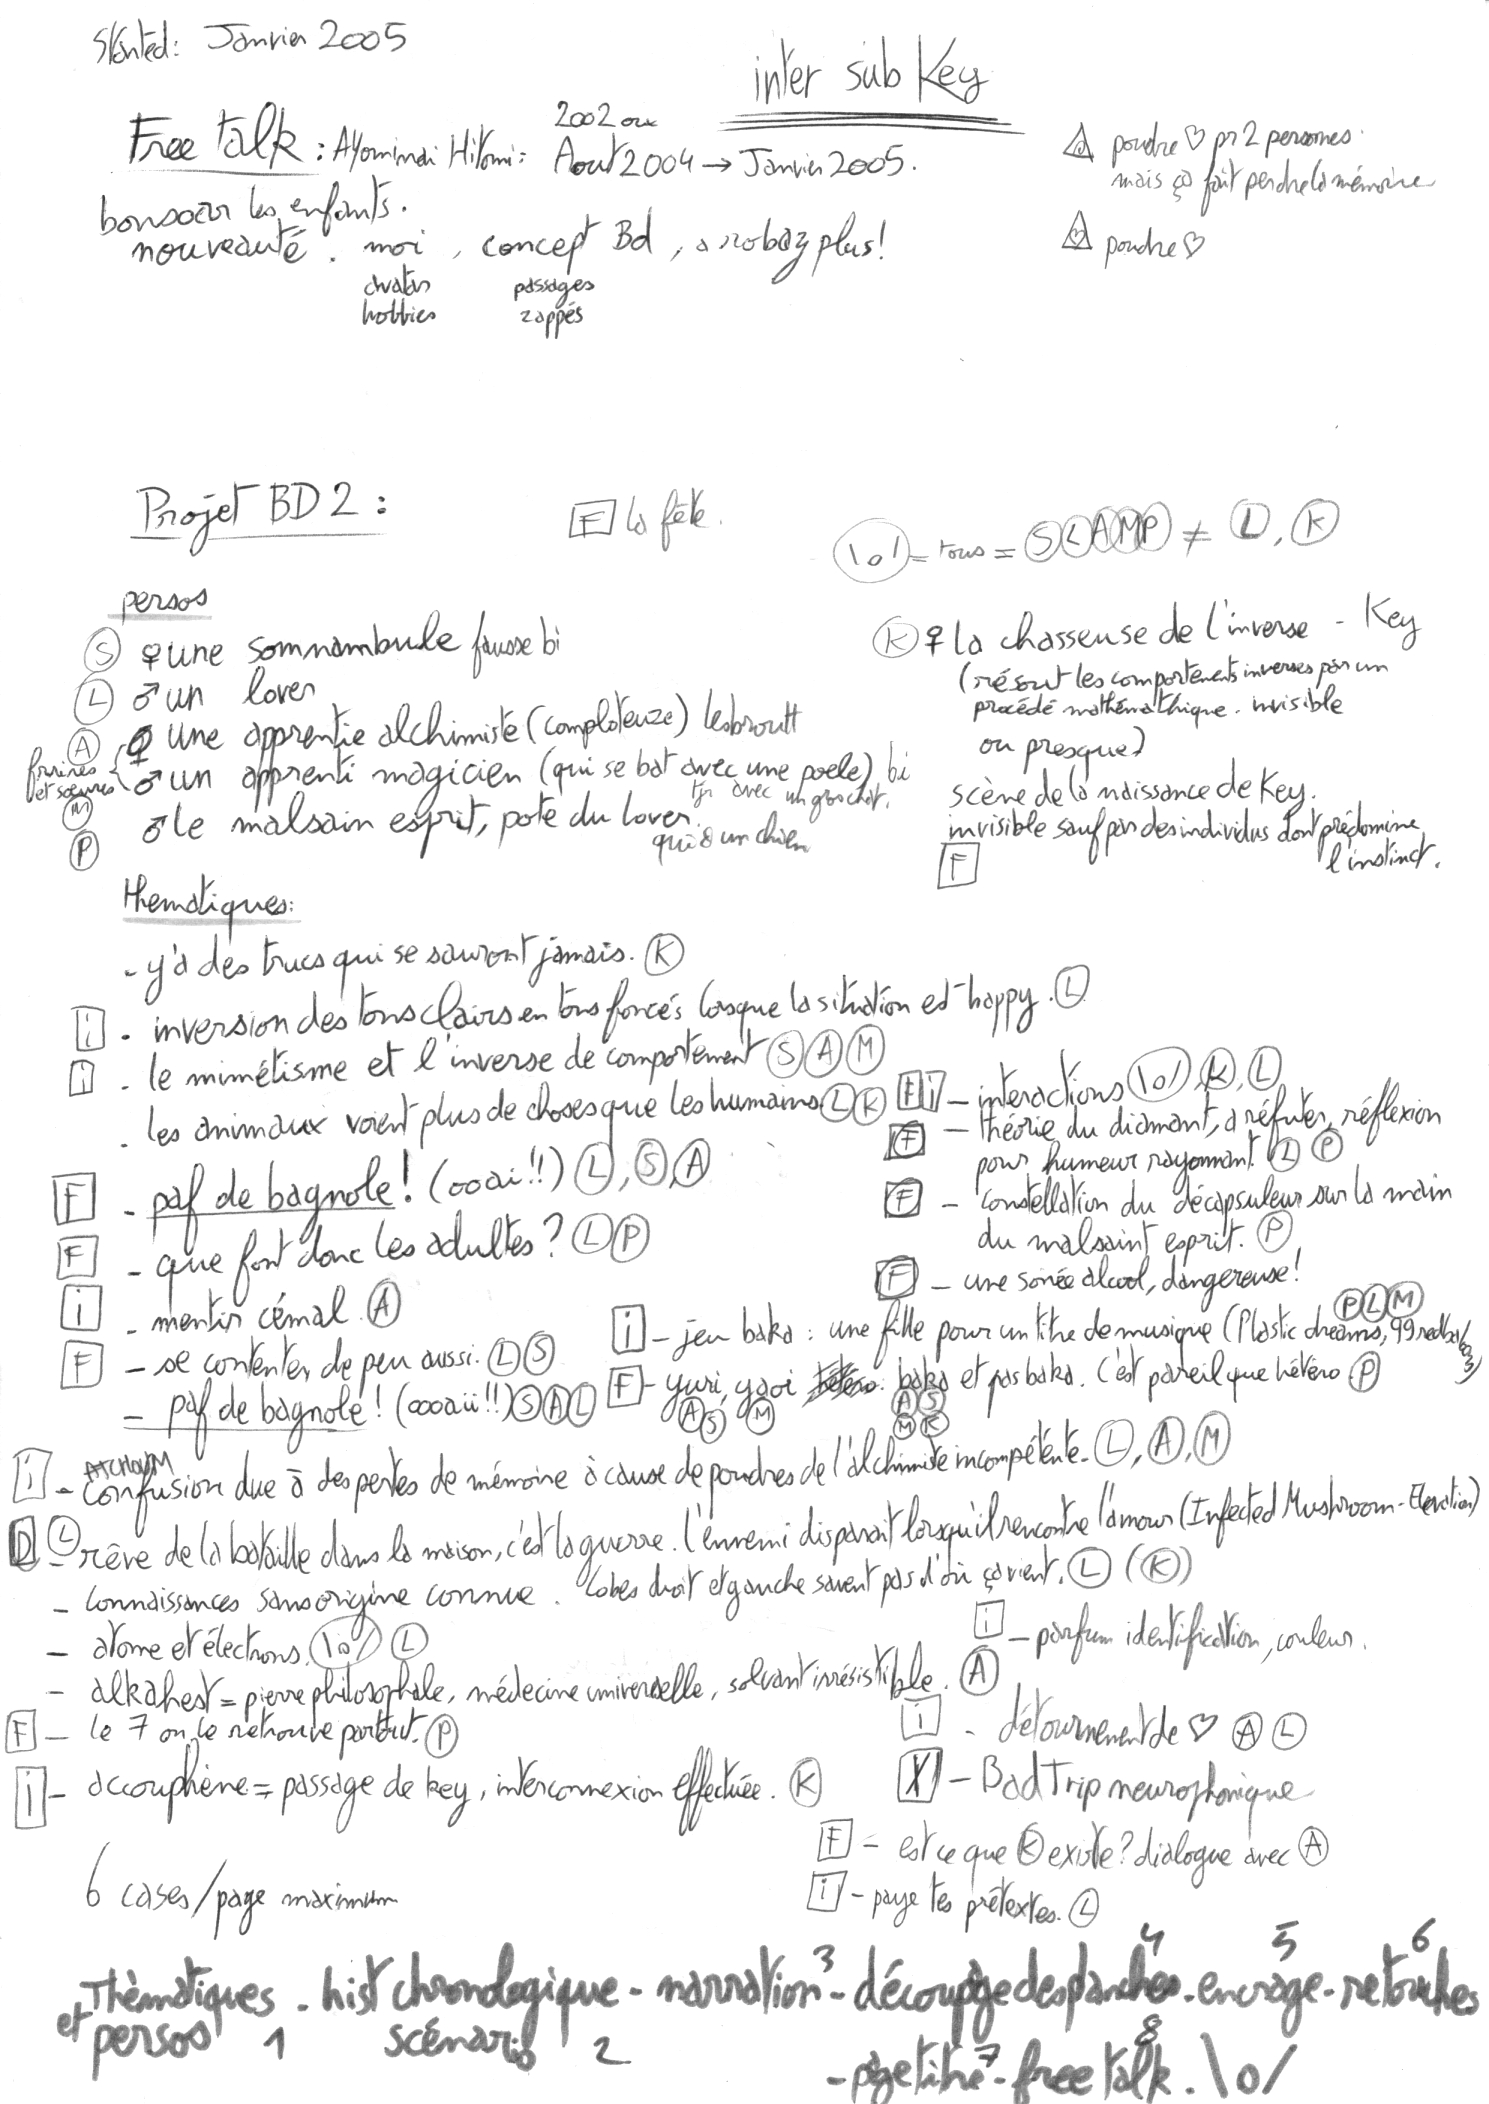 Started: Janvier 2005
inter sub Key
2002 ou
Free talk : Ayomindi Hitomi : Aout 2004 → Janvier 2005.
bonsoar les enfants.
nouveauté . moi , concept Bd , a robaz plus!
avatar passages
hobbies zappés
poudre ♡ pr 2 personnes.
mais ça fait perdre la mémoire
poudre ♡
Projet BD 2 :
F la fête.
\o/ = tous = S L A M P ≠ L , K
persos
S ♀ une somnambule fausse bi
L ♂ un lover
A ♀ une apprentie alchimiste (comploteuze) lesbroutt
frrires et soeures
M ♂ un apprenti magicien (qui se bat avec une poele) bi
tjr avec un gros chat.
P ♂ le malsain esprit, pote du lover.
qui a un chien
K ♀ la chasseuse de l'inverse - Key
(résout les comportements inverses par un
procédé mathémathique. invisible
ou presque)
scène de la naissance de Key.
invisible sauf par des individus dont prédomine
l'instinct.
F
thematiques:
- y'a des trucs qui se sauront jamais. K
i - inversion des tons clairs en tons foncés lorsque la situation est happy. L
i - le mimétisme et l'inverse de comportement S A M
- les animaux voient plus de choses que les humains L K
F - paf de bagnole! (oooai!!) L, S, A
F - que font donc les adultes? L P
i - mentir cémal. A
F - se contenter de peu aussi. L S
- paf de bagnole! (oooaii!!) S A L
F i - interactions \o/, K, L
F - théorie du diamant, a réfuter, réflexion
pour humeur rayonnant. L P
F - constellation du décapsuleur sur la main
du malsaint esprit. P
F - une soirée alcool, dangereuse!
P L M
i - jeu baka : une fille pour un titre de musique (Plastic dreams, 99 red
F - yuri, yaoi hétéro. baka et pas baka. C'est pareil que hétéro P
A S M A S
M K
ATCHOUM
i - confusion due à des pertes de mémoire à cause de poudres de l'alchimiste incompétente. L, A, M
D L - rêve de la bataille dans la maison, c'est la guerre. l'ennemi disparait lorsqu'il rencontre l'amour (Infected Mushroom - Elevation)
- connaissances sans origine connue. Lobes droit et gauche savent pas d'où ça vient. L (K)
- atome et électrons. \o/ L
- alkahest = pierre philosophale, médecine universelle, solvant irrésistible. A
F - le 7 on le retrouve partout. P
i - accouphène = passage de key, interconnexion effectuée. K
i - parfum identification, couleur.
i - détournement de ♡ A L
X - Bad Trip neurophonique
F - est ce que K existe? dialogue avec A
i - paye tes prétextes. L
6 cases/page maximum
Thèmatiques - hist chronologique - narration 3 - découpage des planches 4 - encrage 5 - retouches 6
et persos 1 scénario 2
- page titre 7 - free talk 8 . \o/